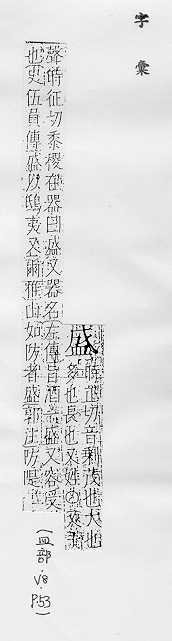 字彙
盛時正切音剩茂也大也
多也長也又姓○又平
聲時征切黍稷在器曰盛又器名左傳旨酒一盛又容受
也吏伍員傳盛以鴟夷又爾雅山如防者盛郭注防隄
(皿部·V8 P.53)